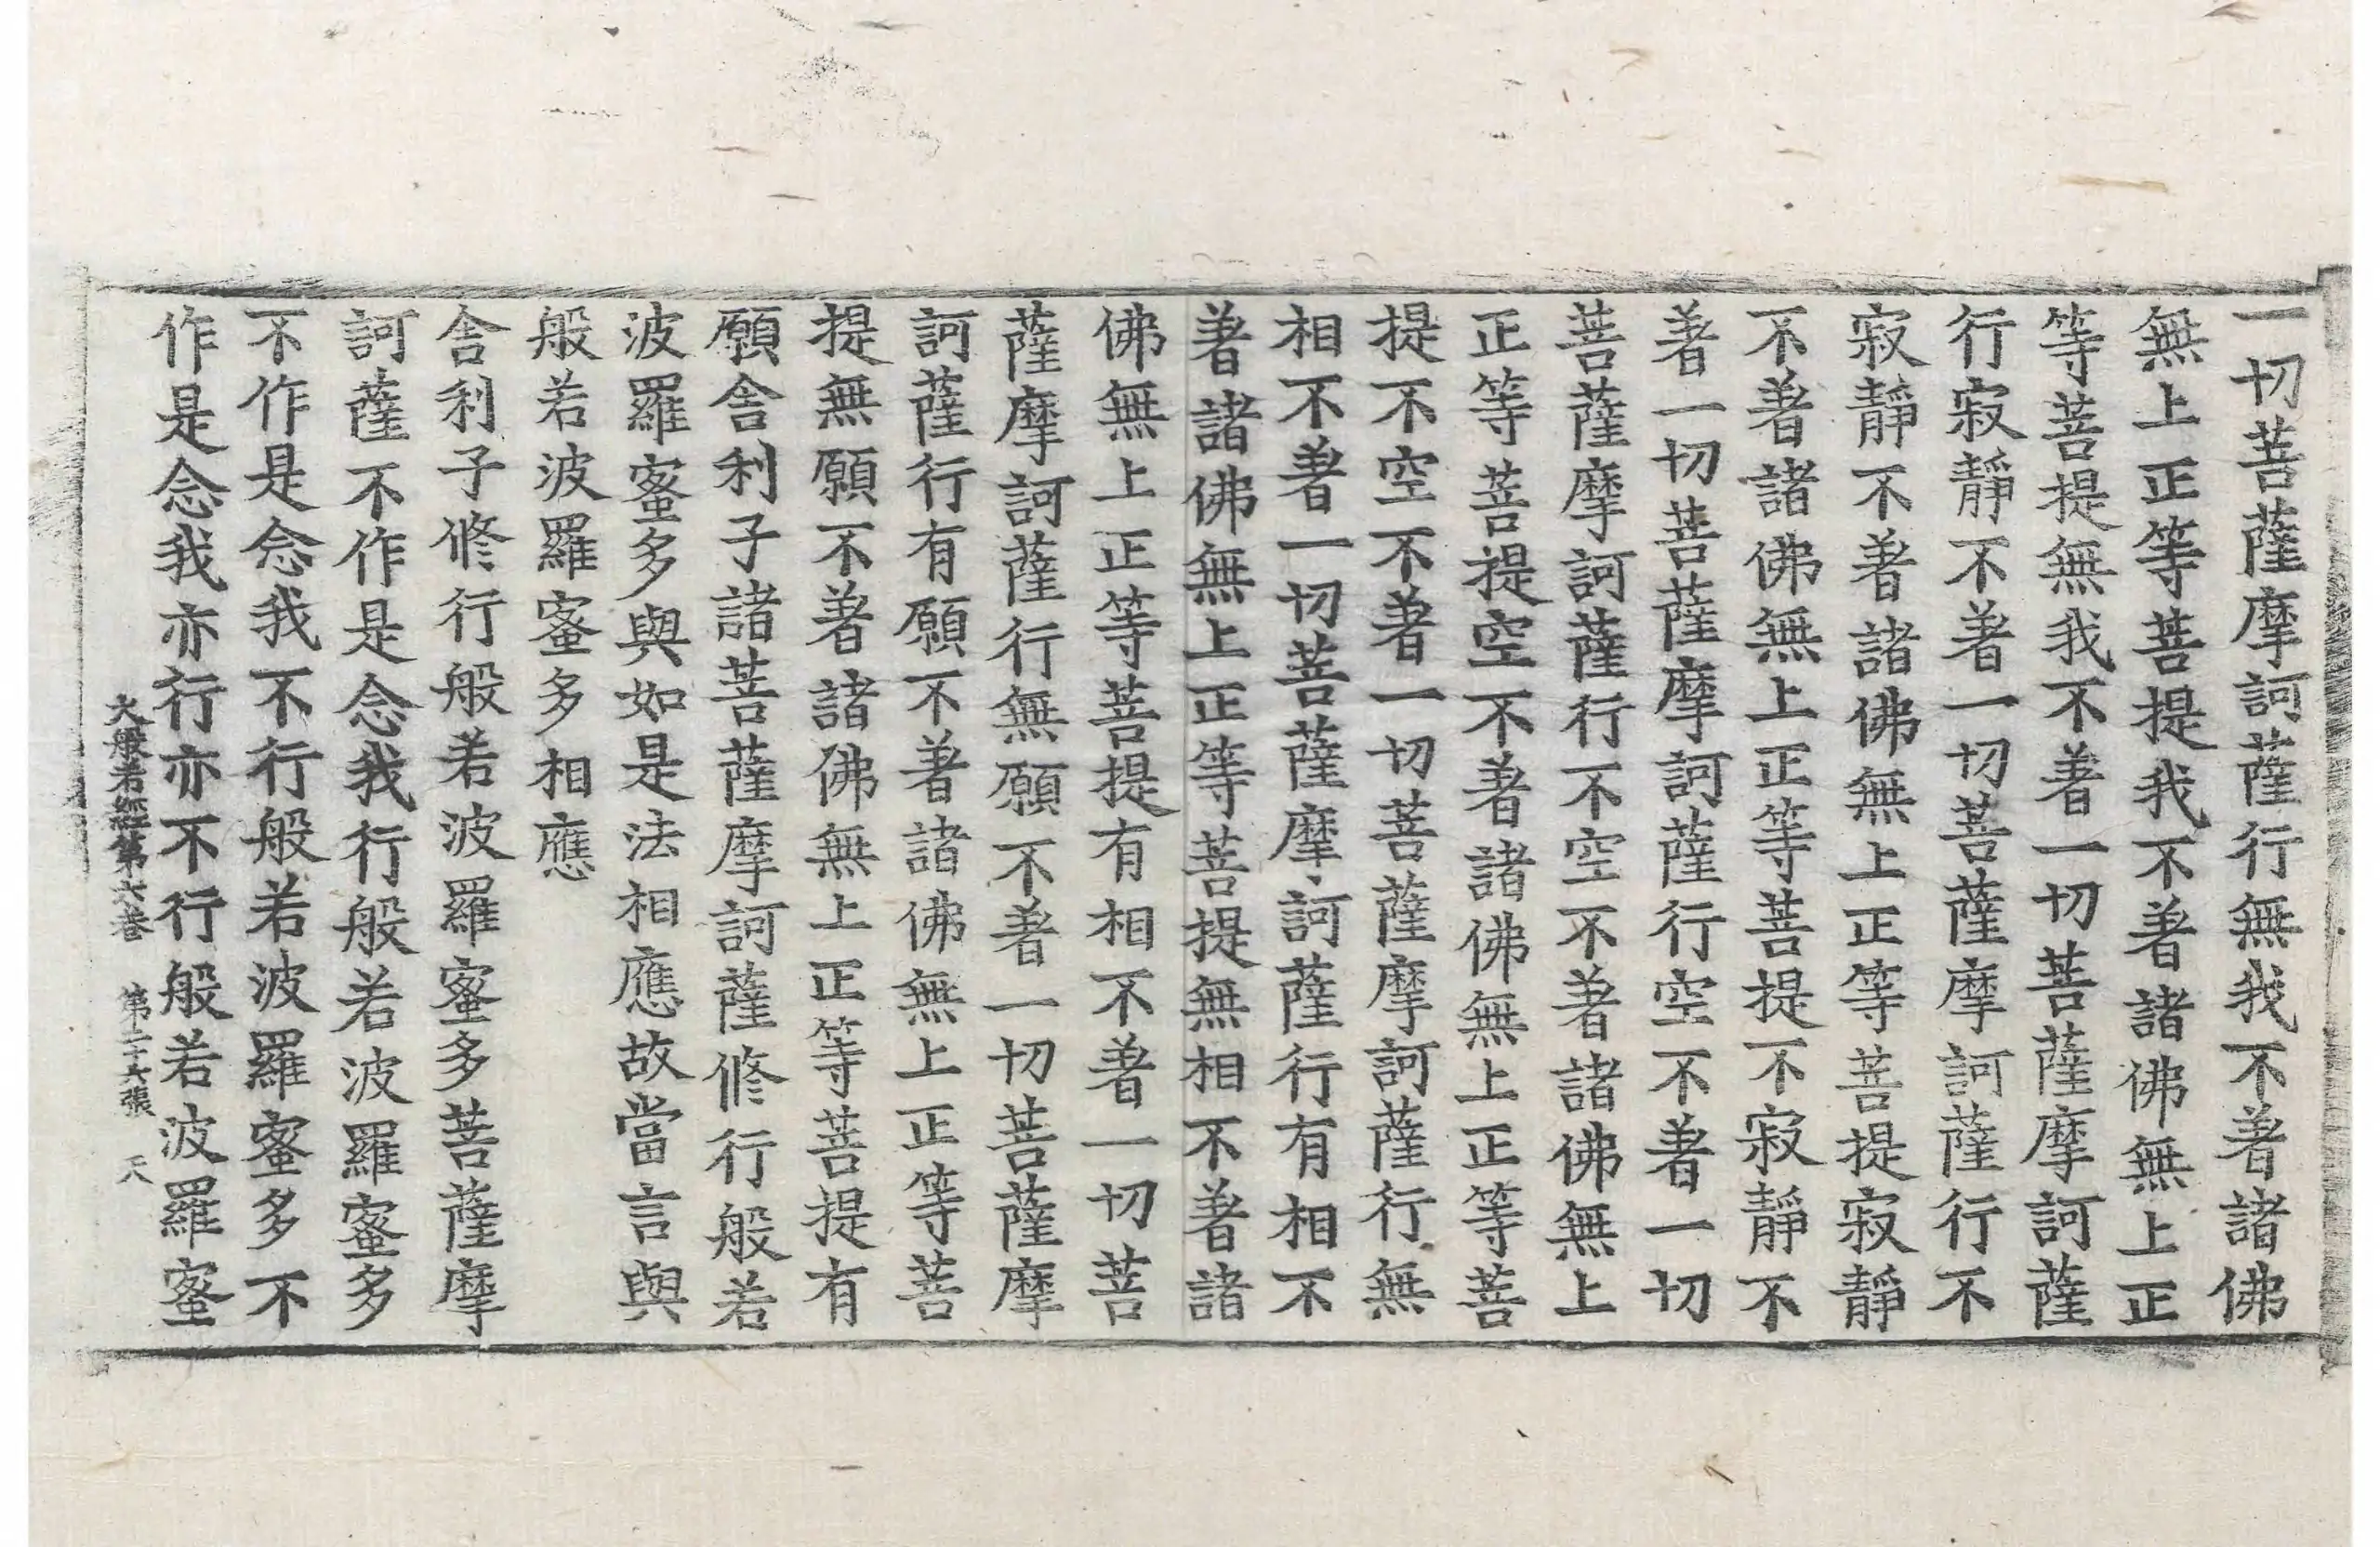 一切菩薩摩訶薩行無我不著諸佛
無上正等菩提我不著諸佛無上正
等菩提無我不著一切菩薩摩訶薩
行寂靜不著一切菩薩摩訶薩行不
寂靜不著諸佛無上正等菩提寂靜
不著諸佛無上正等菩提不寂靜不
著一切菩薩摩訶薩行空不著一切
菩薩摩訶薩行不空不著諸佛無上
正等菩提空不著諸佛無上正等菩
提不空不著一切菩薩摩訶薩行無
相不著一切菩薩摩訶薩行有相不
著諸佛無上正等菩提無相不著諸
佛無上正等菩提有相不著一切菩
薩摩訶薩行無願不著一切菩薩摩
訶薩行有願不著諸佛無上正等菩
提無願不著諸佛無上正等菩提有
願舍利子諸菩薩摩訶薩修行般若
波羅蜜多與如是法相應故當言與
般若波羅蜜多相應
舍利子修行般若波羅蜜多菩薩摩
訶薩不作是念我行般若波羅蜜多
不作是念我不行般若波羅蜜多不
作是念我亦行亦不行般若波羅蜜
大般若經第六卷　第二十六張　天